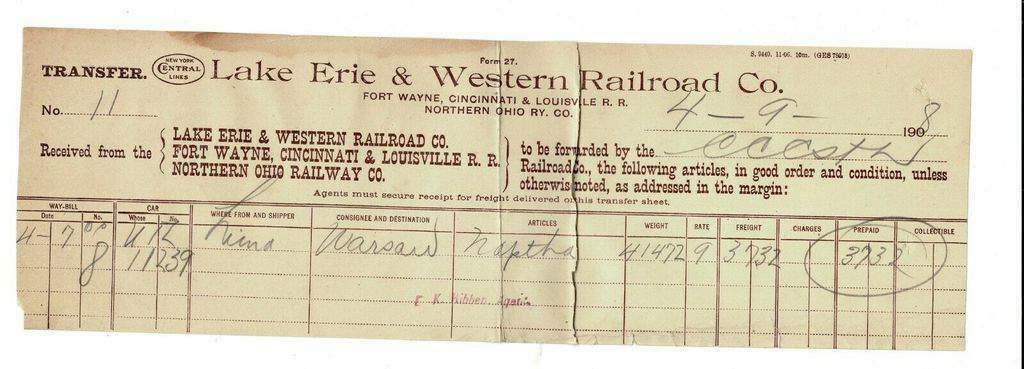 S. 9440. 11-06. 10m. (GES 78018)
Form 27.
TRANSFER. NEW YORK CENTRAL LINES Lake Erie & Western Railroad Co.
FORT WAYNE, CINCINNATI & LOUISVILLE R. R.
NORTHERN OHIO RY. CO.
No. 11 4-9- 1908
Received from the
LAKE ERIE & WESTERN RAILROAD CO.
FORT WAYNE, CINCINNATI & LOUISVILLE R. R.
NORTHERN OHIO RAILWAY CO.
to be forwarded by the
Railroad Co., the following articles, in good order and condition, unless
otherwise noted, as addressed in the margin:
Agents must secure receipt for freight delivered on this transfer sheet.
WAY-BILL CAR WHERE FROM AND SHIPPER CONSIGNEE AND DESTINATION ARTICLES WEIGHT RATE FREIGHT CHARGES PREPAID COLLECTIBLE
Date No. Whose No.
4-7 Lima Warsaw Naptha 41472 9 3732 3732
8 11239
F. K. Kibben, Agent.